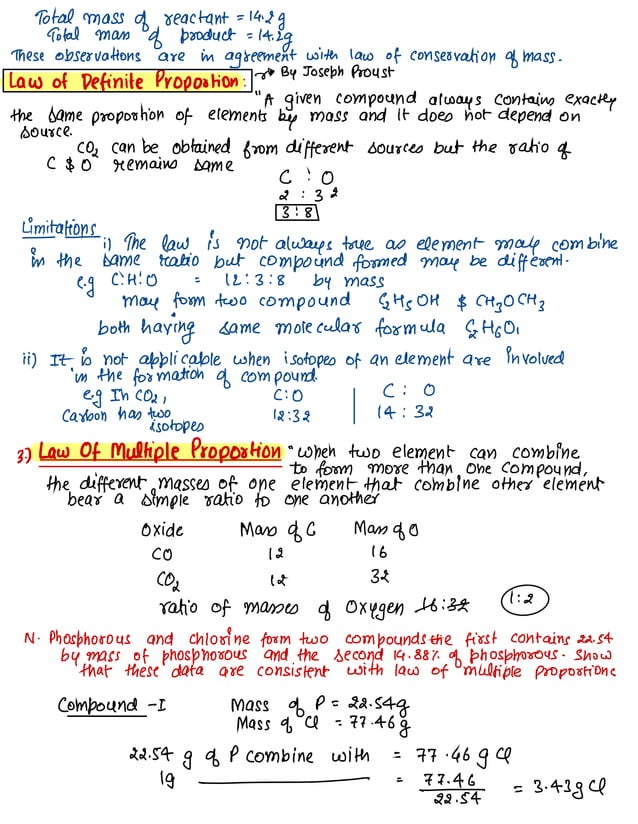 Total mass of reactant = 14.2g
Total mass of product = 14.2g
These observations are in agreement with law of conservation of mass.
Law of Definite Proportion: → By Joseph Proust
"A given compound always contains exactly
the same proportion of elements by mass and it does not depend on
source.
CO2 can be obtained from different sources but the ratio of
C & O remains same
C : O
2 : 32
3:8
Limitations
i) The law is not always true as element may combine
in the same ratio but compound formed may be different.
e.g C:H:O = 12:3:8 by mass
may form two compound C2H5OH & CH3OCH3
both having same molecular formula C2H6O,
ii) It is not applicable when isotopes of an element are involved
in the formation of compound.
e.g In CO2, C:O | C : O
Carbon has two 12:32 | 14 : 32
isotopes
3.) Law Of Multiple Proportion "when two element can combine
to form more than one compound,
the different masses of one element that combine other element
bear a simple ratio to one another
Oxide Mass of C Mass of O
CO 12 16
CO2 12 32
ratio of masses of Oxygen 16:32 1:2
N. Phosphorous and chlorine form two compounds the first contains 22.54
by mass of phosphorous and the second 14.88% of phosphorous. Show
that these data are consistent with law of multiple proportions
Compound -I Mass of P = 22.54g
Mass of Cl = 77.46g
22.54 g of P combine with = 77.46 g Cl
1g = 77.46 / 22.54 = 3.43g Cl